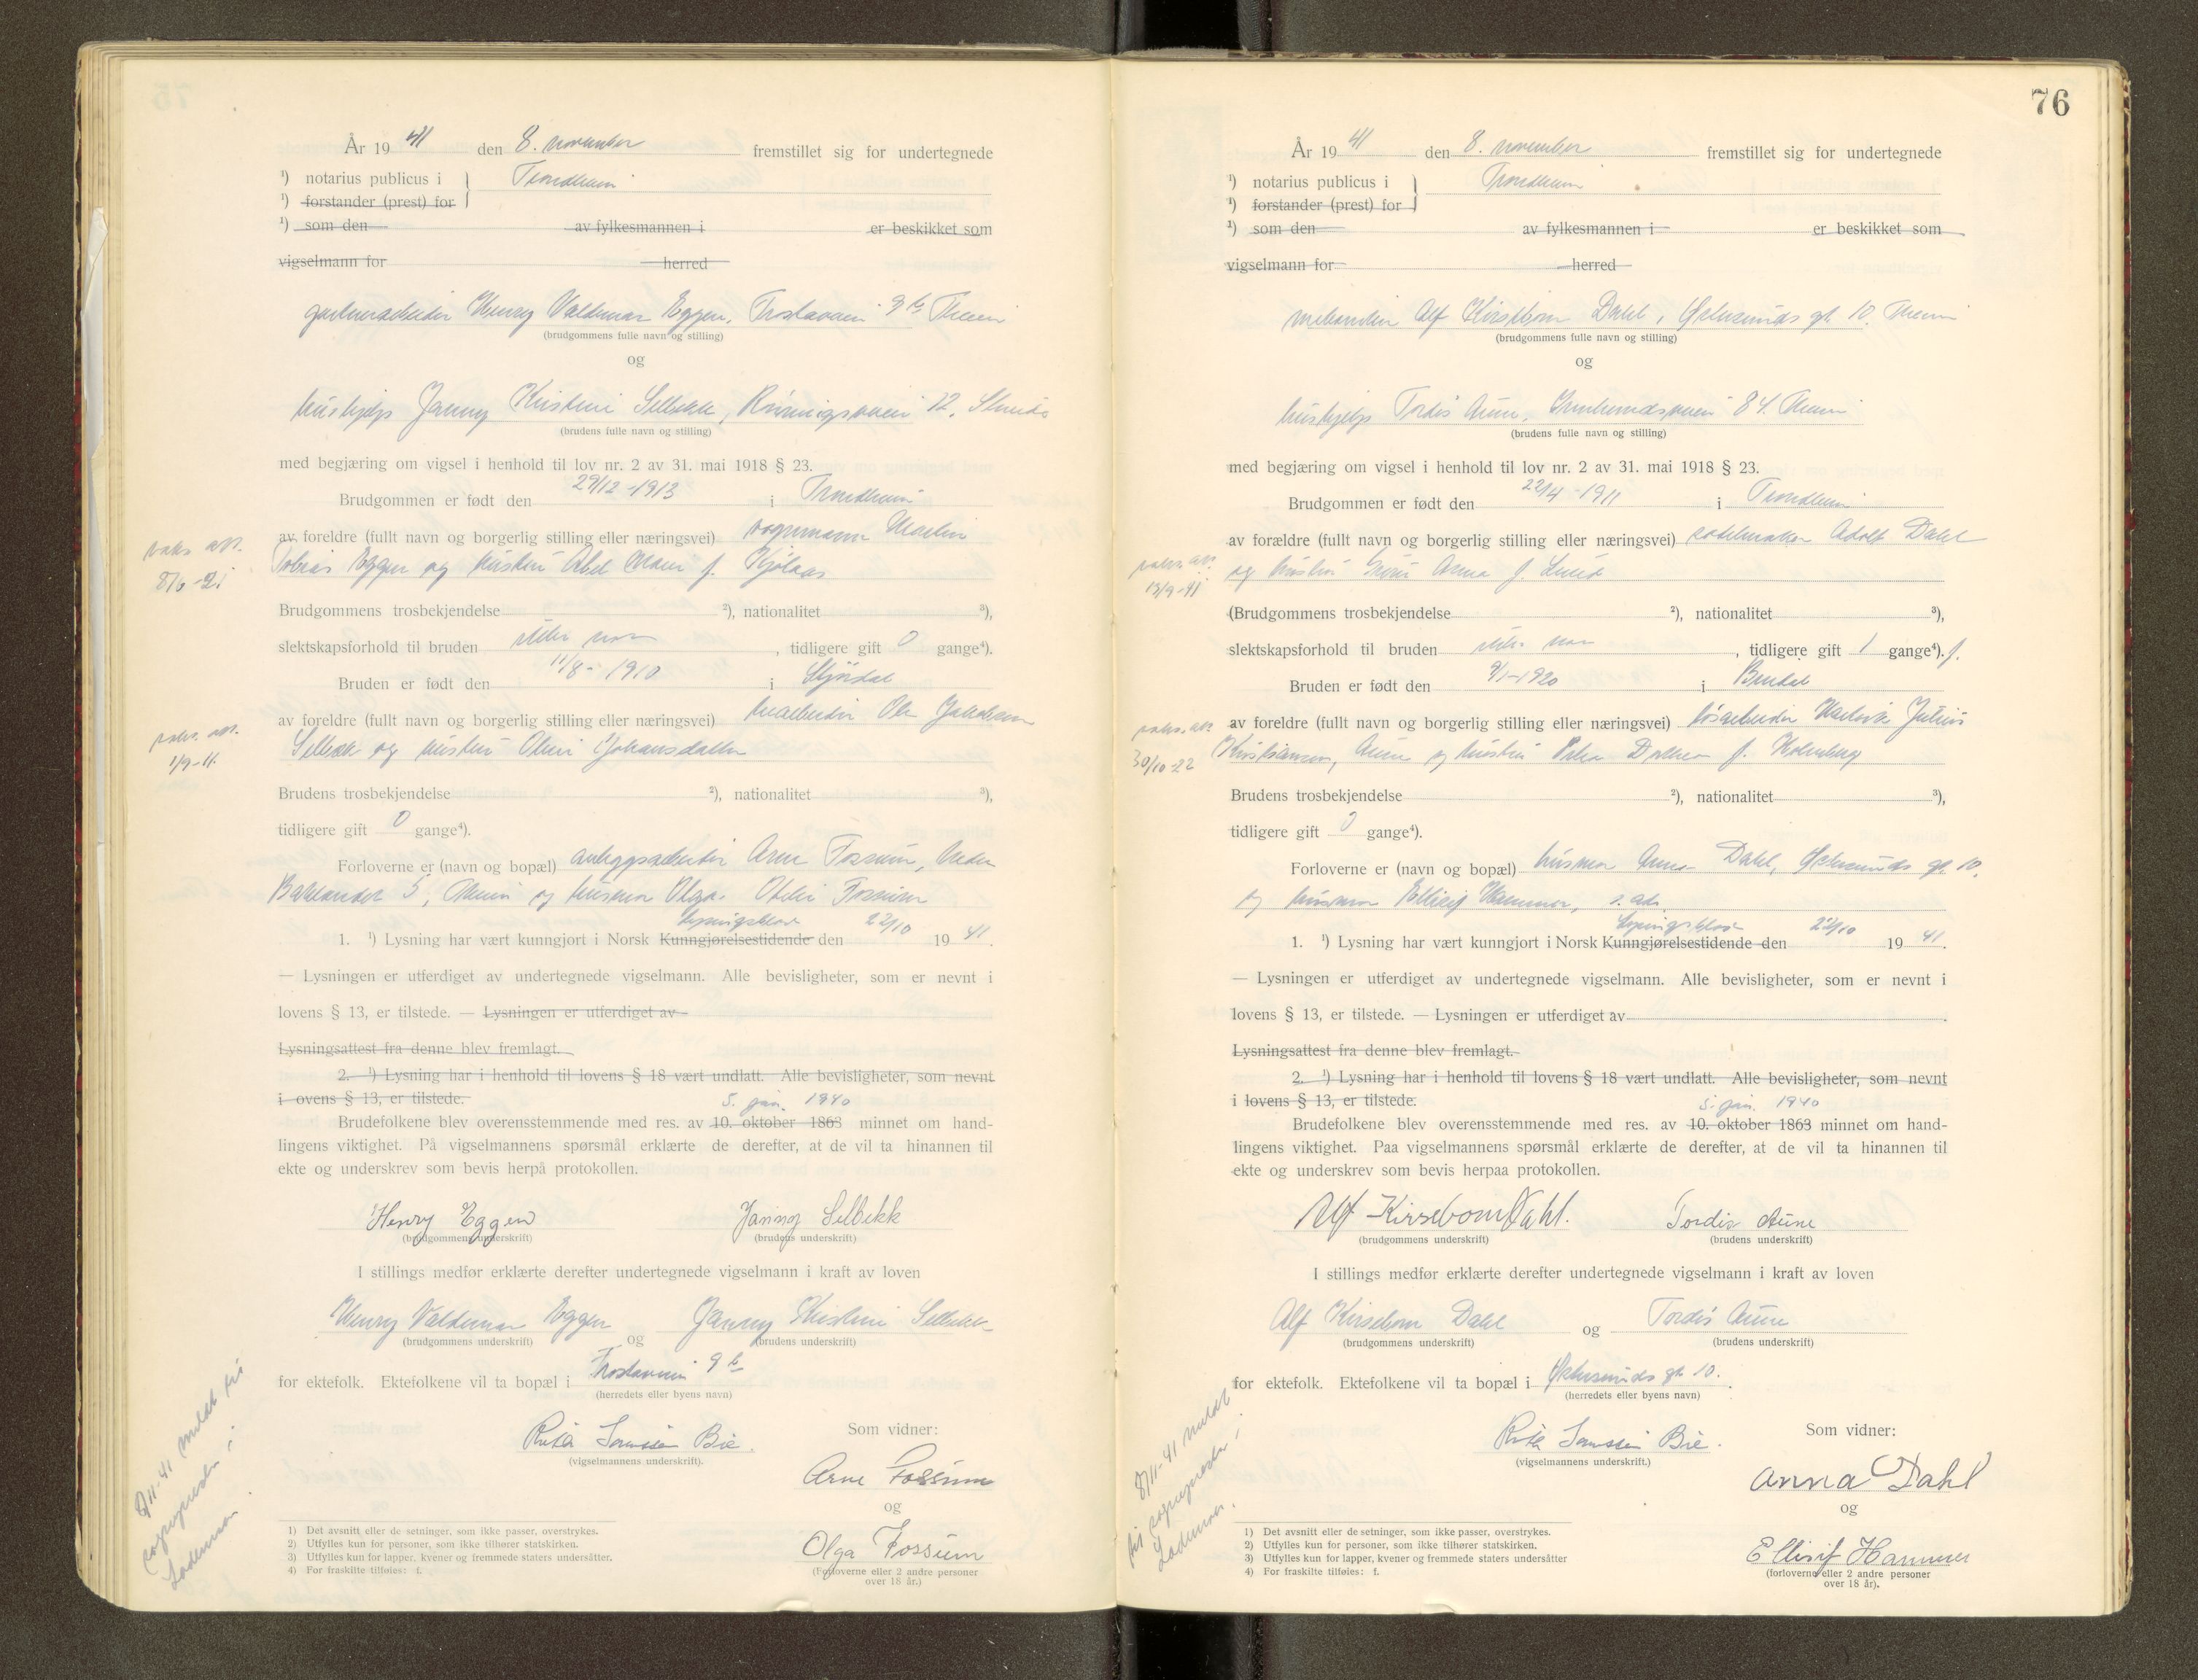 År 19 41 den 8. november fremstillet sig for undertegnede
¹) notarius publicus i Trondheim
¹) forstander (prest) for
¹) som den av fylkesmannen i er beskikket som
vigselmann for herred
Henry Valdemar Eggen, 9 b
(brudgommens fulle navn og stilling)
og
hushjelp Janny Kristine Selbekk, 12, Strinda
(brudens fulle navn og stilling)
med begjæring om vigsel i henhold til lov nr. 2 av 31. mai 1918 § 23.
Brudgommen er født den 29/12-1913 i Trondheim
av foreldre (fullt navn og borgerlig stilling eller næringsvei) vognmann Martin
Tobias Eggen og hustru f. Kjølaas
Brudgommens trosbekjendelse ²), nationalitet ³),
slektskapsforhold til bruden ikke noe, tidligere gift 0 gange⁴).
Bruden er født den 11/8-1910 i Stjørdal
av foreldre (fullt navn og borgerlig stilling eller næringsvei) Ole
Selbekk og hustru
vaks. att.
vaks. att.
1/9-11.
Brudens trosbekjendelse ²), nationalitet ³),
tidligere gift 0 gange⁴).
Forloverne er (navn og bopæl) anleggsarbeider Arne Fossum, Nedre
Bakklandet 5, og husmor Olga Fossum
Lysningsblad
1. ¹) Lysning har vært kunngjort i Norsk Kunngjørelsestidende den 22/10 19 41.
— Lysningen er utferdiget av undertegnede vigselmann. Alle bevisligheter, som er nevnt i
lovens § 13, er tilstede. — Lysningen er utferdiget av
Lysningsattest fra denne blev fremlagt.
2. ¹) Lysning har i henhold til lovens § 18 vært undlatt. Alle bevisligheter, som nevnt
i ovens § 13, er tilstede.
5. jan. 1940
Brudefolkene blev overensstemmende med res. av 10. oktober 1863 minnet om hand-
lingens viktighet. På vigselmannens spørsmål erklærte de derefter, at de vil ta hinannen til
ekte og underskrev som bevis herpå protokollen.
Henry Eggen Janny Selbekk
(brudgommens underskrift) (brudens underskrift)
I stillings medfør erklærte derefter undertegnede vigselmann i kraft av loven
Henry Valdemar Eggen og Janny Kristine Selbekk
(brudgommens underskrift) (brudens underskrift)
for ektefolk. Ektefolkene vil ta bopæl i 9 b
(herredets eller byens navn)
Som vidner:
(vigselmannens underskrift).
Arne Fossum
og
Olga Fossum
(Forloverne eller 2 andre personer
over 18 år.)
8/11-41 meldt til
sognepresten i
Lademoen.
1) Det avsnitt eller de setninger, som ikke passer, overstrykes.
2) Utfylles kun for personer, som ikke tilhører statskirken.
3) Utfylles kun for lapper, kvener og fremmede staters undersåtter.
4) For fraskilte tilføies: f.
76
År 19 41 den 8. november fremstillet sig for undertegnede
¹) notarius publicus i Trondheim
¹) forstander (prest) for
¹) som den av fylkesmannen i er beskikket som
vigselmann for herred
Alf Kirsebom Dahl, gt 10.
(brudgommens fulle navn og stilling)
og
hushjelp Tordis Aune, 84.
(brudens fulle navn og stilling)
med begjæring om vigsel i henhold til lov nr. 2 av 31. mai 1918 § 23.
Brudgommen er født den 22/4-1911 i Trondheim
av forældre (fullt navn og borgerlig stilling eller næringsvei) Adolf Dahl
og hustru Anna f. Lund
vaks. att.
(Brudgommens trosbekjendelse ²), nationalitet ³),
slektskapsforhold til bruden ikke noe, tidligere gift 1 gange⁴). f.
Bruden er født den 9/1-1920 i
av foreldre (fullt navn og borgerlig stilling eller næringsvei) Julius
Kristiansen Aune og hustru f. Holmberg
vaks. att.
30/10-22
Brudens trosbekjendelse ²), nationalitet ³),
tidligere gift 0 gange⁴).
Forloverne er (navn og bopæl) husmor Anna Dahl, gt 10.
og husmor Ellisif Hammer, s. ads.
Lysningsblad
1. ¹) Lysning har vært kunngjort i Norsk Kunngjørelsestidende den 22/10 19 41.
— Lysningen er utferdiget av undertegnede vigselmann. Alle bevisligheter, som er nevnt i
lovens § 13, er tilstede. — Lysningen er utferdiget av
Lysningsattest fra denne blev fremlagt.
2. ¹) Lysning har i henhold til lovens § 18 vært undlatt. Alle bevisligheter, som nevnt
i lovens § 13, er tilstede.
5. jan. 1940
Brudefolkene blev overensstemmende med res. av 10. oktober 1863 minnet om hand-
lingens viktighet. Paa vigselmannens spørsmål erklærte de derefter, at de vil ta hinannen til
ekte og underskrev som bevis herpaa protokollen.
Alf Kirsebom Dahl. Tordis Aune
(brudgommens underskrift) (brudens underskrift)
I stillings medfør erklærte derefter undertegnede vigselmann i kraft av loven
Alf Kirsebom Dahl og Tordis Aune
(brudgommens underskrift) (brudens underskrift)
for ektefolk. Ektefolkene vil ta bopæl i gt 10.
(herredets eller byens navn)
Som vidner:
(vigselmannens underskrift.)
Anna Dahl
og
Ellisif Hammer
(forloverne eller 2 andre personer
over 18 år).
8/11-41 meldt
til sognepresten i
Lademoen.
1) Det avsnitt eller de setninger, som ikke passer, overstrykes.
2) Utfylles kun for personer, som ikke tilhører statskirken.
3) Utfylles kun for lapper, kvener og fremmede staters undersåtter
4) For fraskilte tilføies: f.